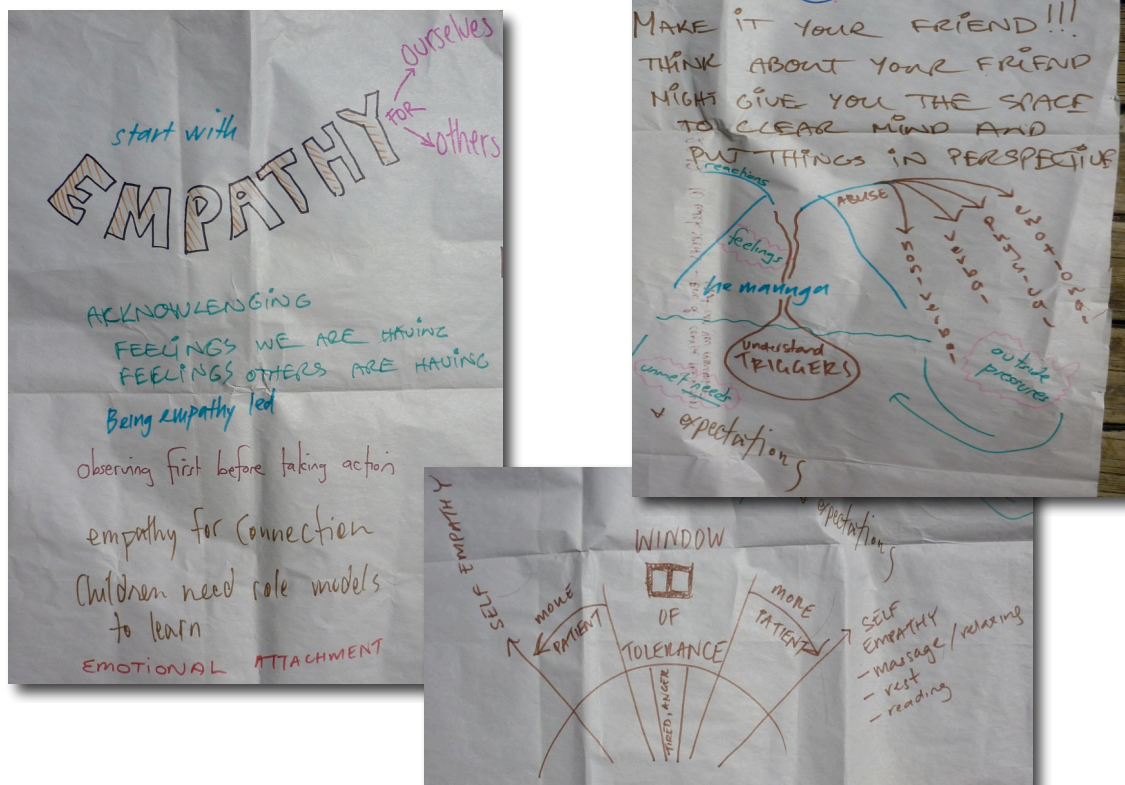 start with
EMPATHY
FOR
ourselves
others
ACKNOWLENGING
FEELINGS WE ARE HAVING
FEELINGS OTHERS ARE HAVING
Being empathy led
observing first before taking action
empathy for connection
Children need role models
to learn
EMOTIONAL ATTACHMENT
MAKE iT YOUR FRiEND!!!
THiNK ABOUT YOUR FRiEND
MiGHT GiVE YOU THE SPACE
TO CLEAR MiND AND
PUT THiNGS iN PERSPECTiVE
reactions
ABUSE
feelings
he maunga
understand
TRIGGERS
unmet needs
outside
pressures
& expectations
& expectations
SELF EMPATHY
MORE
PATIENT
WINDOW
OF
TOLERANCE
TIRED, ANGER
MORE
PATIENT
SELF
EMPATHY
- massage/relaxing
- rest
- reading